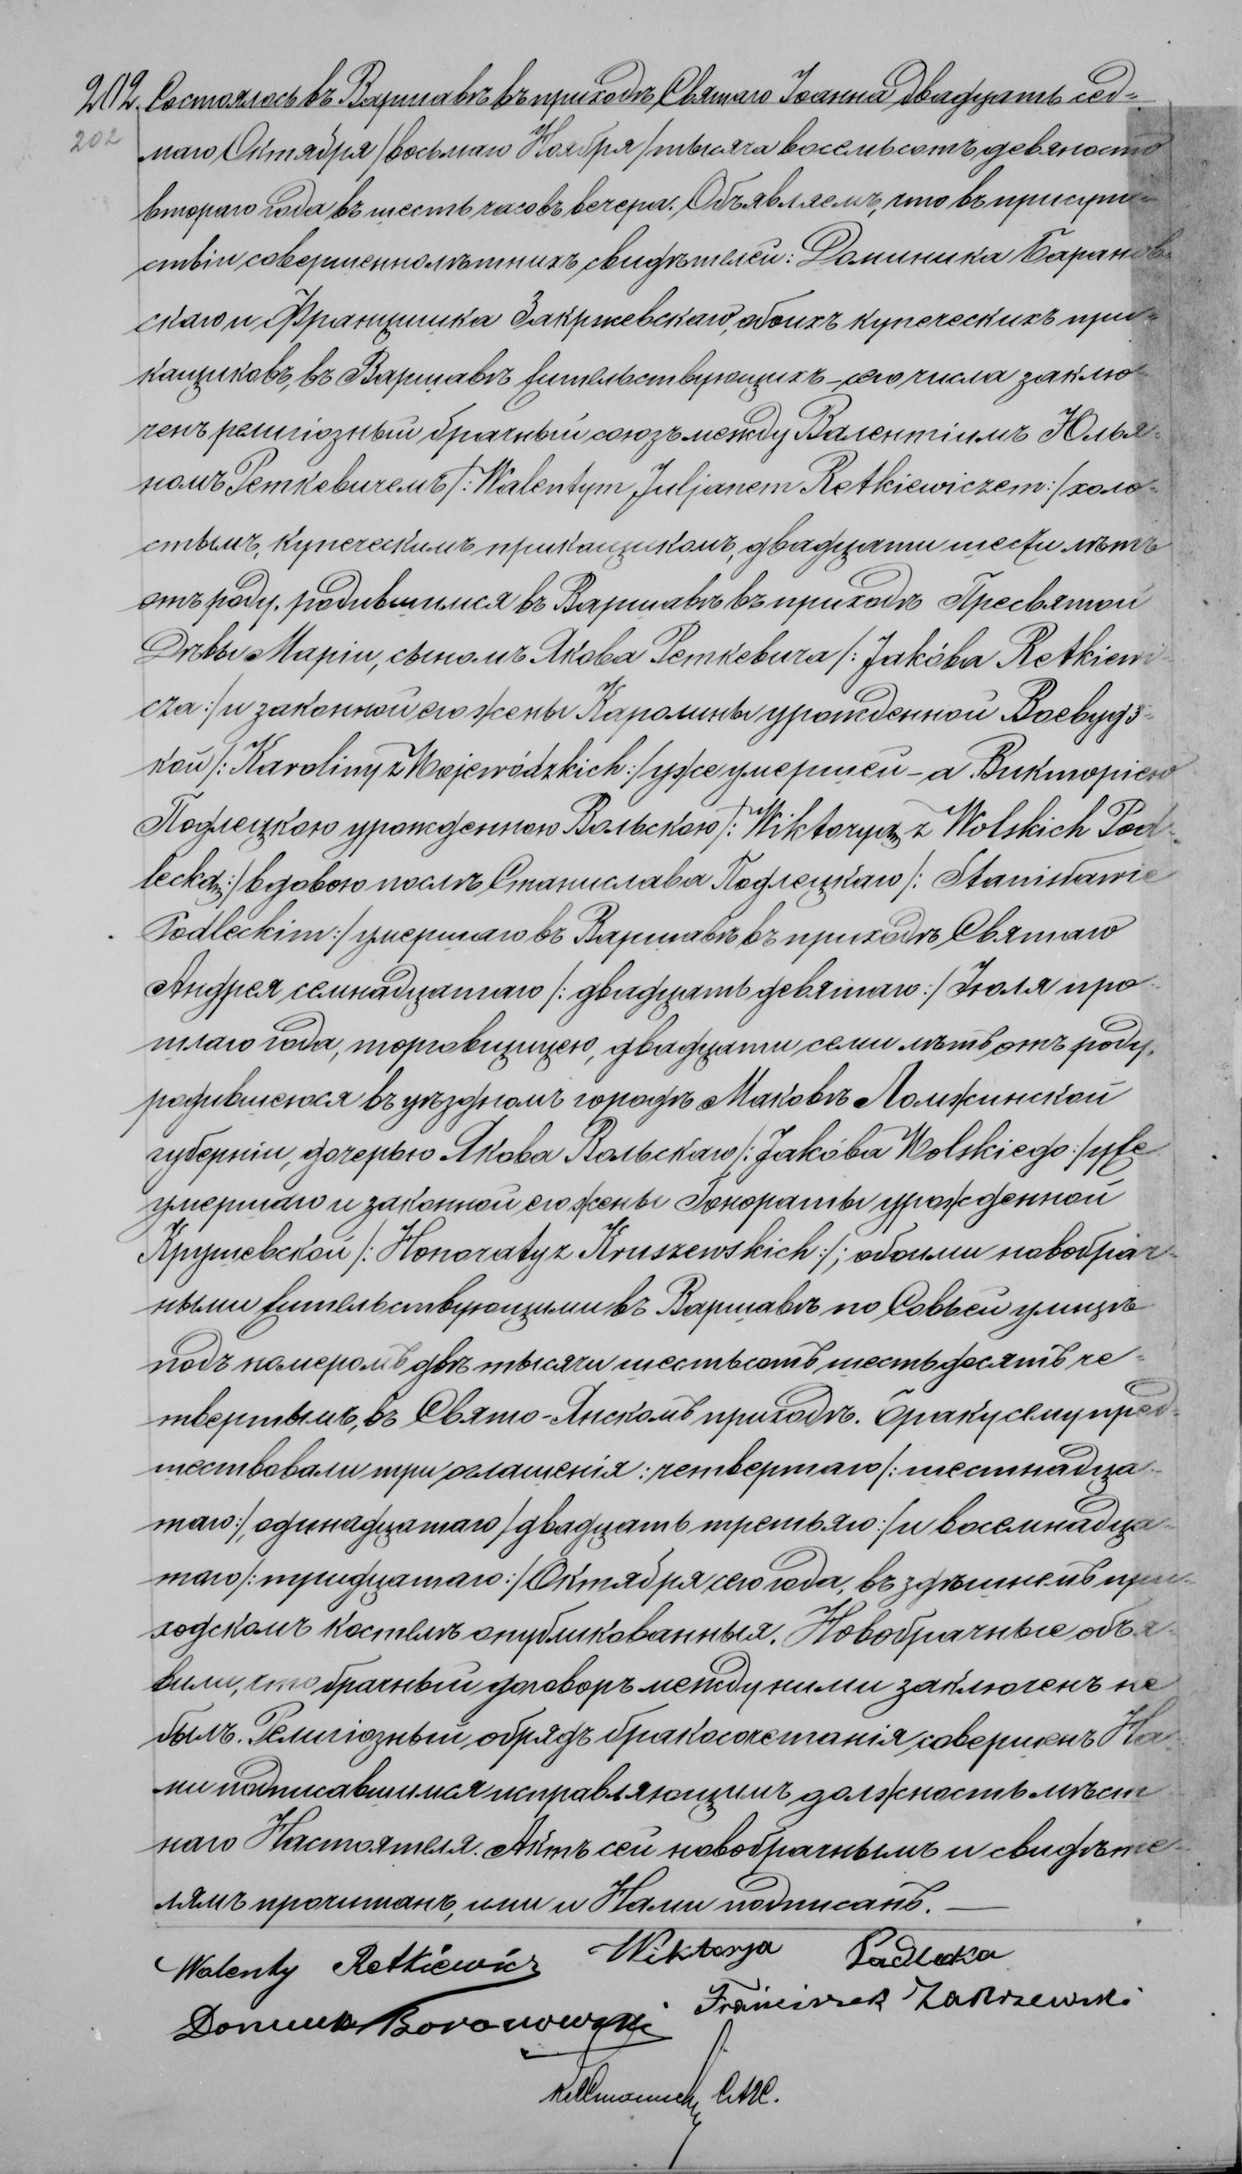 202. Состоялось въ Варшавѣ въ приходѣ Святаго Іоанна двадцать седь=
202
маго Октября / восьмаго Ноября / тысяча восемьсотъ девяносто
втораго года въ шесть часовъ вечера. Объявляемъ, что въ присут=
ствіи совершеннолѣтнихъ свидѣтелей: Доминика Баранов=
скаго и Францишка Закржевскаго, обоихъ купеческихъ при=
кащиковъ, въ Варшавѣ жительствующихъ – сего числа заклю=
ченъ религіозный брачный союзъ между Валентіемъ Юлья=
номъ Реткевичемъ /: Walentym Juljanem Retkiewiczem :/ холо=
стымъ, купеческимъ прикащикомъ, двадцати шести лѣтъ
отъ роду, родившимся въ Варшавѣ въ приходѣ Пресвятой
Дѣвы Маріи, сыномъ Якова Реткевича /: Jakóba Retkiewi=
cza :/ и законной его жены Каролины урожденной Воевудз=
кой /: Karoliny z Wojewódzkich :/ уже умершей – а Викторіею
Подлецкою урожденною Вольскою /: Wiktoryą z Wolskich Pod=
lecką :/ вдовою послѣ Станислава Подлецкаго /: Stanisławie
Podleckim :/ умершаго въ Варшавѣ въ приходѣ Святаго
Андрея семнадцатаго /: двадцать девятаго :/ Іюля про=
шлаго года, торговщицею, двадцати семи лѣтъ отъ роду,
родившеюся въ уѣздномъ городѣ Маковѣ Ломжинской
губерніи, дочерью Якова Вольскаго /: Jakóba Wolskiego :/ уже
умершаго и законной его жены Гонораты урожденной
Крушевской /: Honoraty z Kruszewskich :/; обоими новобрач=
ными жительствующими въ Варшавѣ по Совьей улицѣ
подъ номеромъ двѣ тысячи шестьсотъ шестьдесятъ че=
твертымъ, въ Свято-Янскомъ приходѣ. Браку сему пред=
шествовали три оглашенія: четвертаго /: шестнадца=
таго :/, одинадцатаго / двадцать третьяго :/ и восемнадца=
таго /: тридцатаго :/ Октября сего года, въ здѣшнемъ при=
ходскомъ костелѣ опубликованныя. Новобрачные объя=
вили, что брачный договоръ между ними заключенъ не
былъ. Религіозный обрядъ бракосочетанія совершенъ На=
ми подписавшимся исправляющимъ должность мѣст=
наго Настоятеля. Актъ сей новобрачнымъ и свидѣте=
лямъ прочитанъ, ими и Нами подписанъ. —
Walenty Retkiewicz Wiktorja Padlecka
Dominik Boronowski Franciszek Zakrzewski